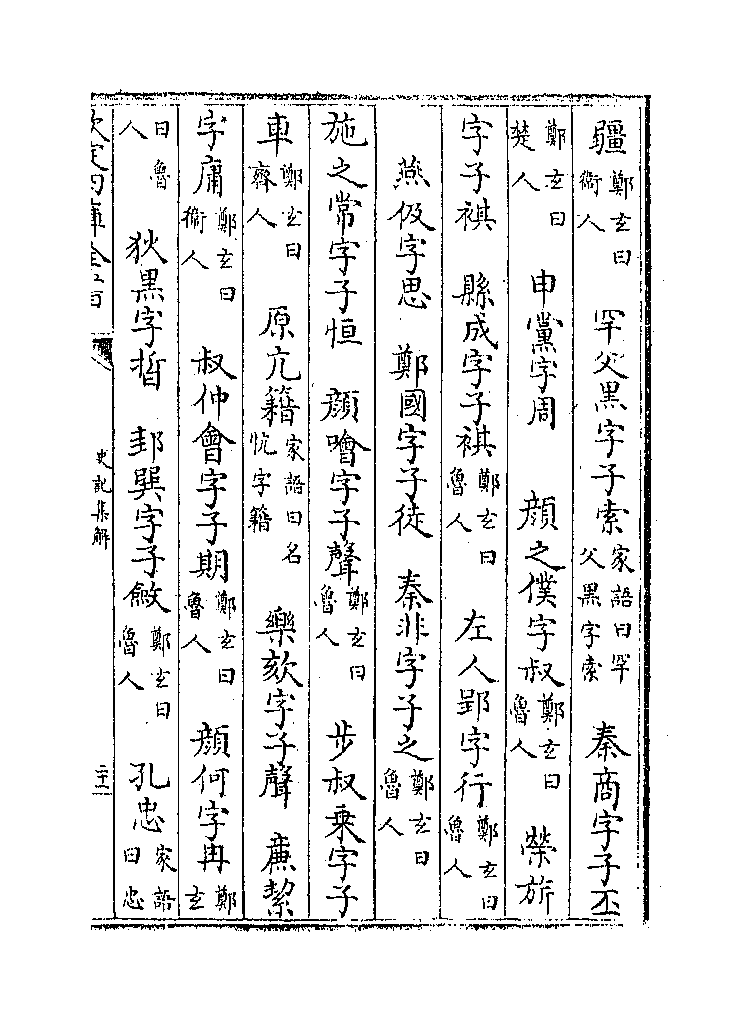 疆鄭玄曰衞人　罕父黑字子索家語曰罕父黑字索　秦商字子丕
鄭玄曰楚人　申黨字周　顔之僕字叔鄭玄曰魯人　榮旂
字子祺　縣成字子祺鄭玄曰魯人　左人郢字行鄭玄曰魯人
燕伋字思　鄭國字子徒　秦非字子之鄭玄曰魯人
施之常字子恒　顔噲字子聲鄭玄曰魯人　步叔乗字子
車鄭玄曰齊人　原亢籍家語曰名忼字籍　樂欬字子聲　亷絜
字庸鄭玄曰衞人　叔仲會字子期鄭玄曰魯人　顔何字冉鄭玄
曰魯人　狄黒字晳　邽巽字子斂鄭玄曰魯人　孔忠家語曰忠
欽定四庫全書
史記集解